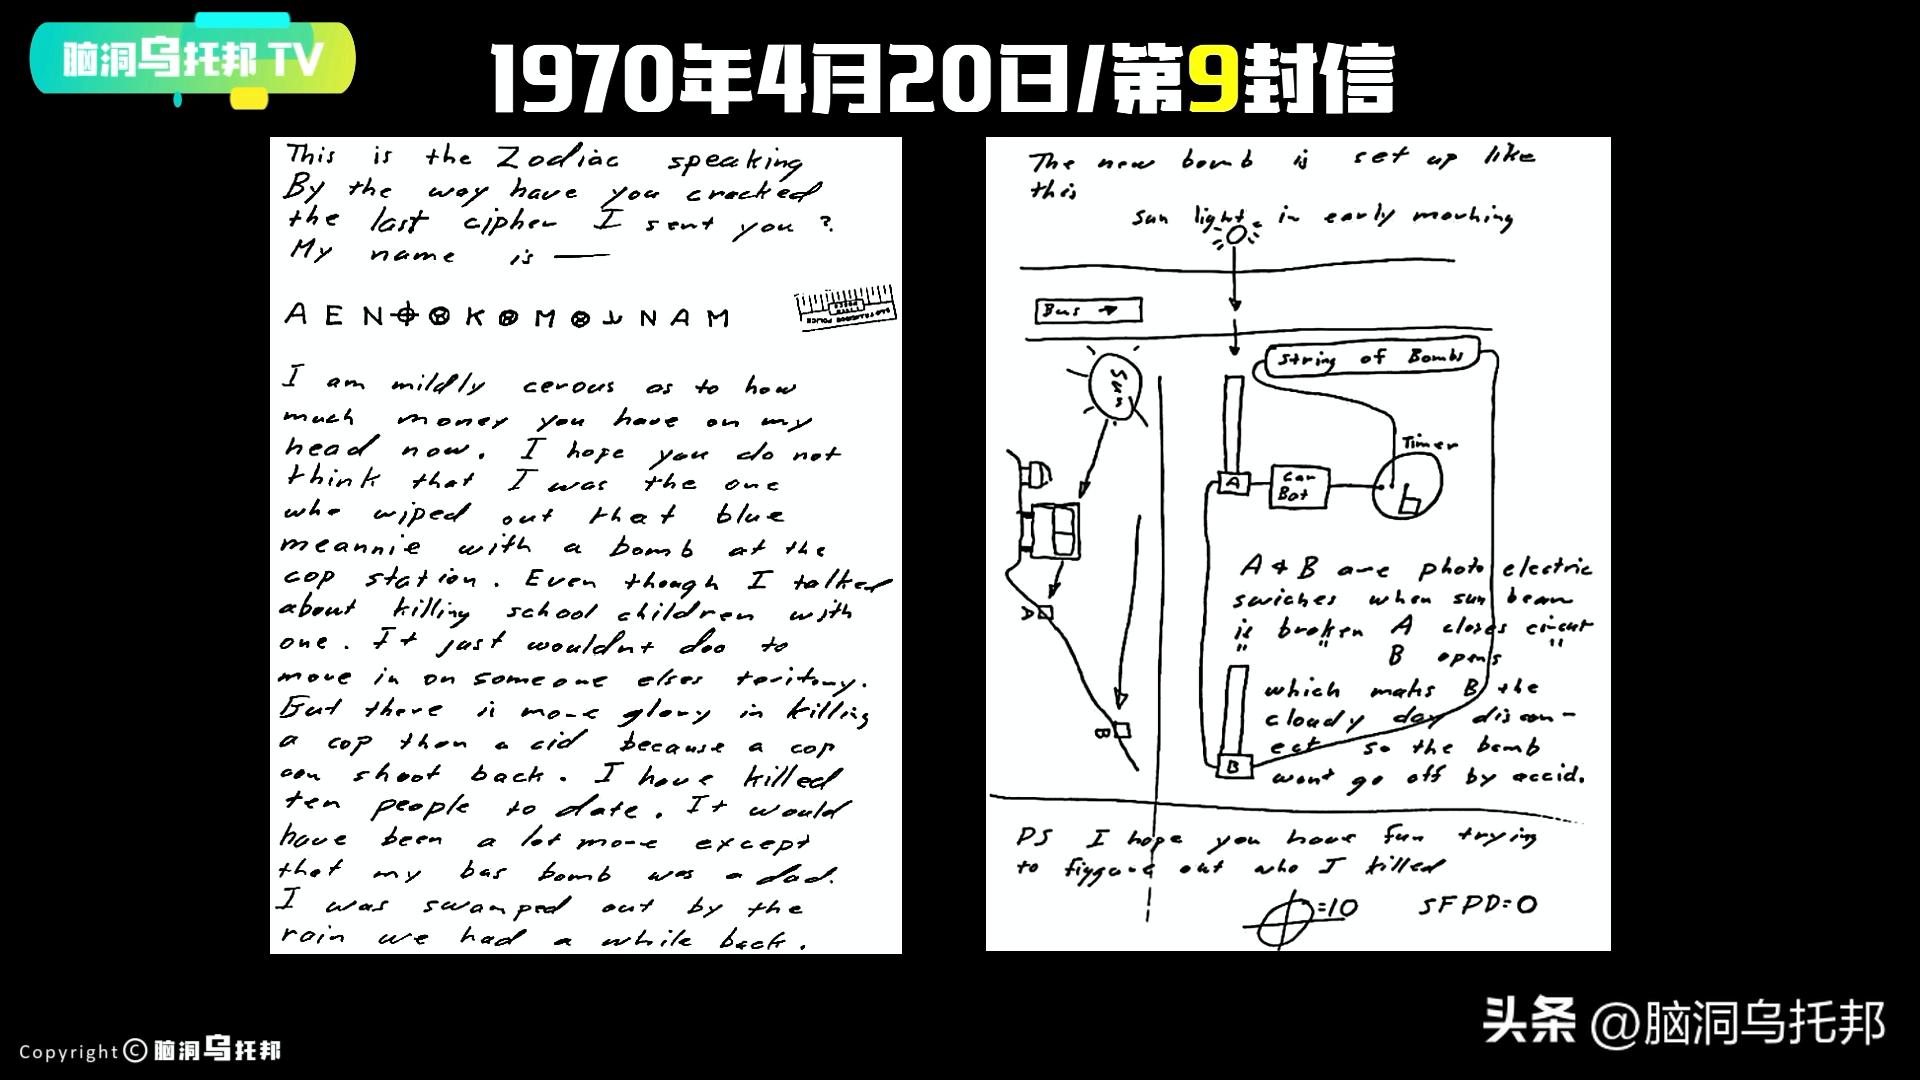 脑洞乌托邦 TV
1970年4月20日/第9封信
This is the Zodiac speaking
By the way have you cracked
the last cipher I sent you?
My name is —
A E N K M N A M
I am mildly cerous as to how
much money you have on my
head now. I hope you do not
think that I was the one
who wiped out that blue
meannie with a bomb at the
cop station. Even though I talked
about killing school children with
one. It just wouldnt doo to
move in on someone elses teritory.
But there is more glory in killing
a cop than a cid because a cop
can shoot back. I have killed
ten people to date. It would
have been a lot more except
that my bus bomb was a dad.
I was swamped out by the
rain we had a while back.
The new bomb is set up like
this
sun light in early morning
Bus
String of Bombs
Sun
Timer
A
Car
Bat
A
B
A & B are photo electric
swiches when sun beam
is broken A closes circut
" " B opens "
which maks B the
cloudy day discon-
ect so the bomb
wont go off by accid.
B
PS I hope you have fun trying
to figgure out who I killed
=10 SFPD=0
头条 @脑洞乌托邦
Copyright © 脑洞乌托邦